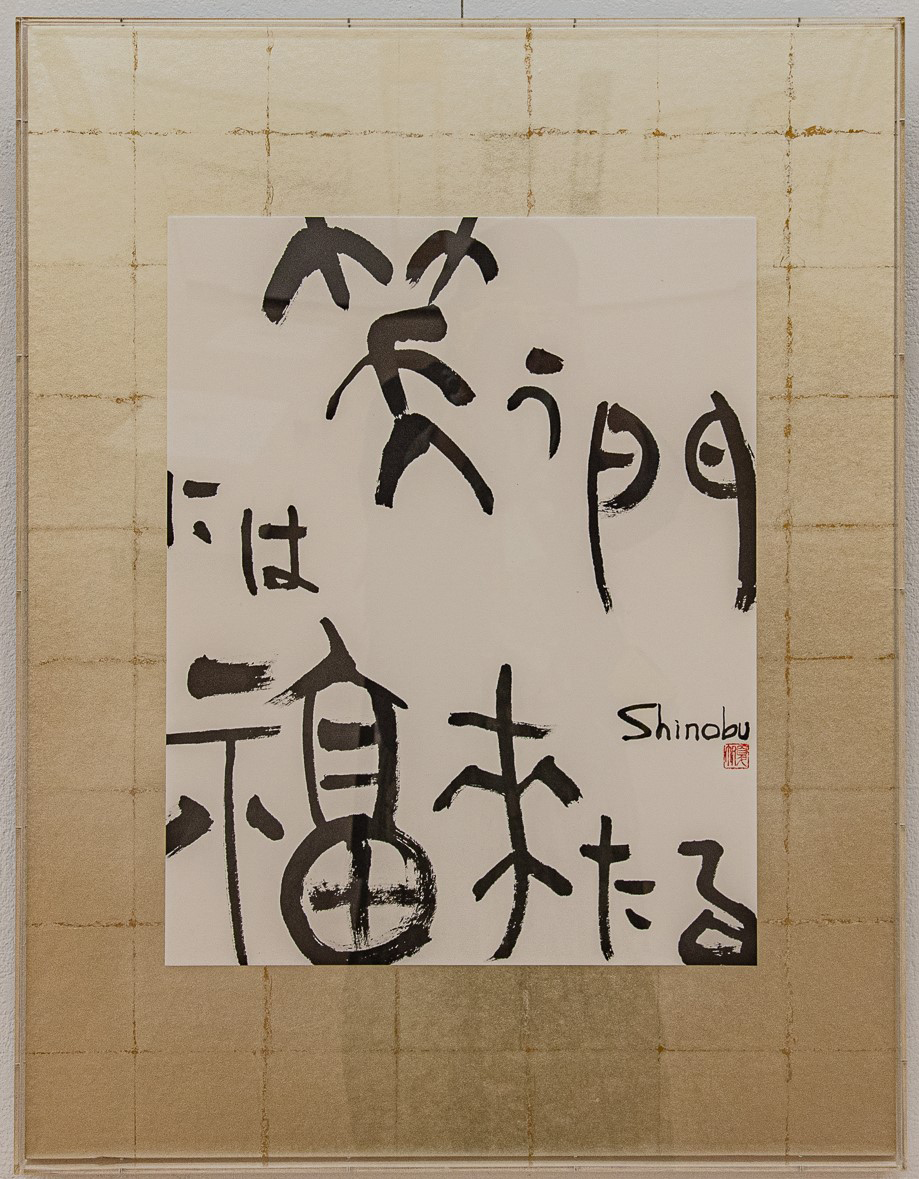 笑う門
には
福来たる
Shinobu